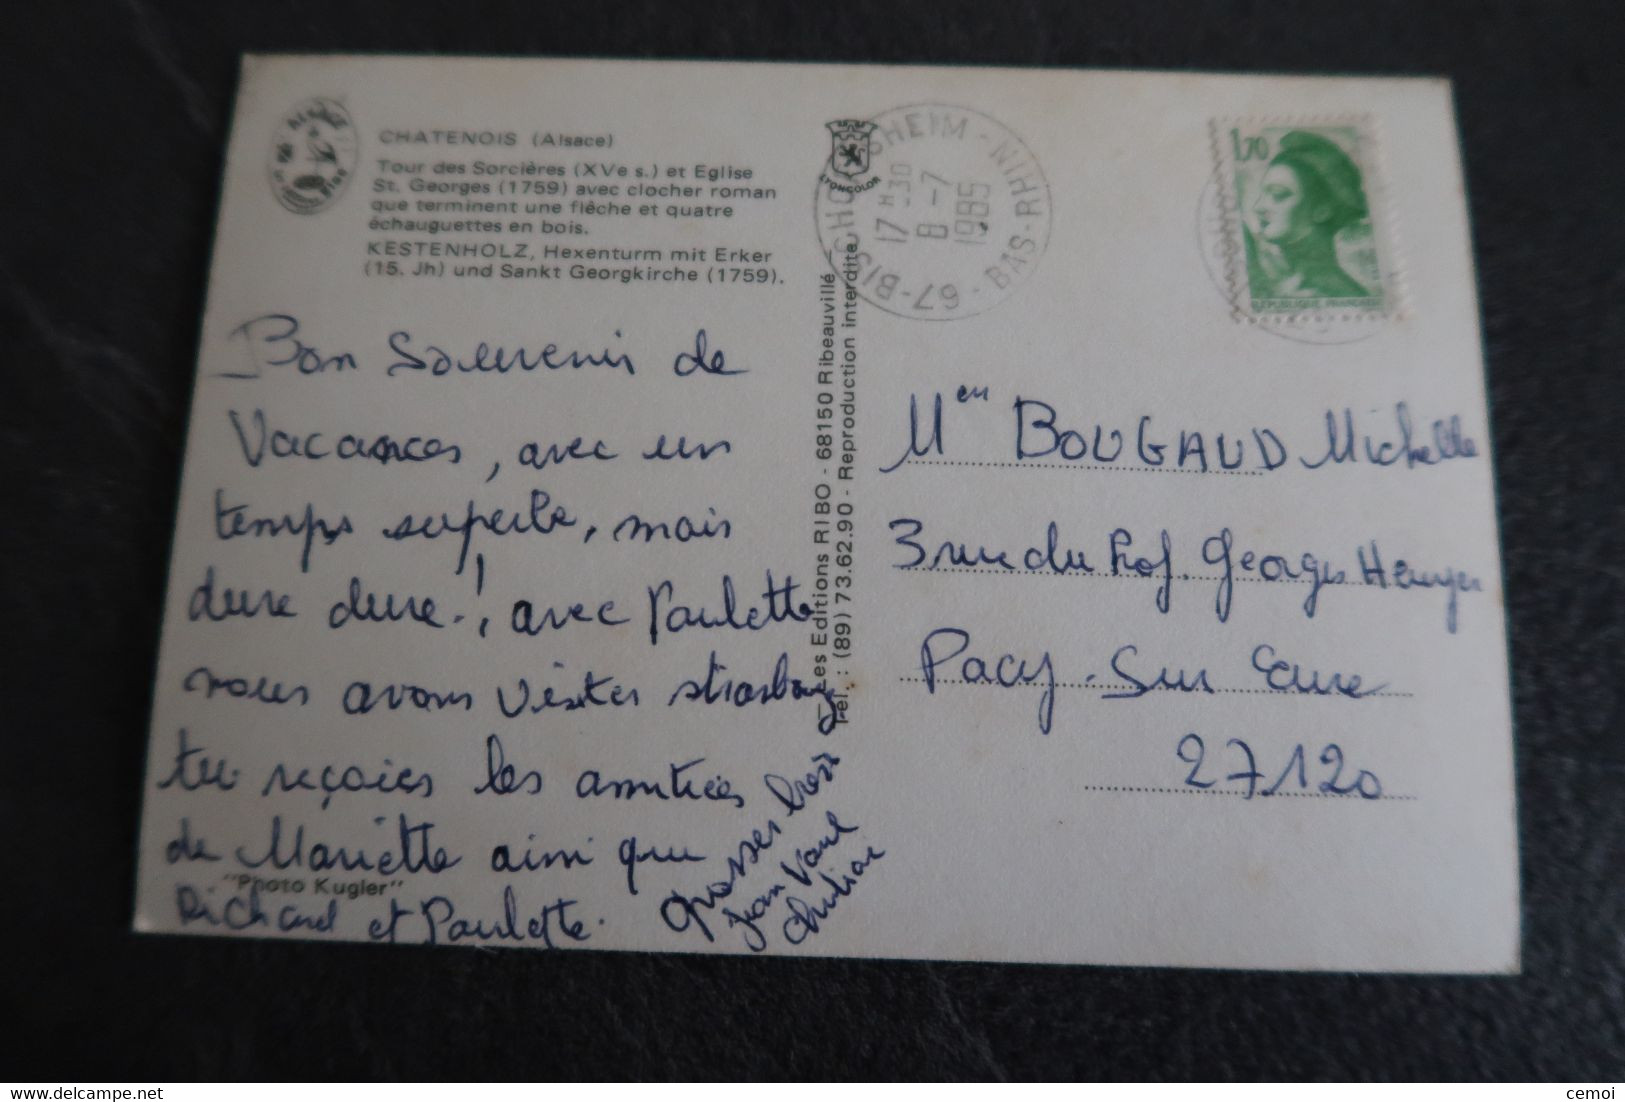 CHATENOIS (Alsace)
Tour des Sorcières (XVe s.) et Eglise
St. Georges (1759) avec clocher roman
que terminent une flêche et quatre
échauguettes en bois.
KESTENHOLZ, Hexenturm mit Erker
(15. Jh) und Sankt Georgkirche (1759).
Bon Souvenir de
Vacances, avec un
temps superbe, mais
dure dure.! avec Paulette
nous avons visiter strasbourg
tu reçoies les amitiées
de Mariette ainsi que
"Photo Kugler"
Richard et Paulette.
grosses bises
jean Paul
LYONCOLOR
Les Editions RIBO - 68150 Ribeauvillé
Tél. : (89) 73.62.90 - Reproduction interdite
67 - BISCHOFFSHEIM - BAS-RHIN
17 H 30
8 -7
1985
1,70
REPUBLIQUE FRANÇAISE
Men BOUGAUD Michelle
3 rue du Prof. Georges Heuyer
Pacy-Sur Eure
27120
cemoi